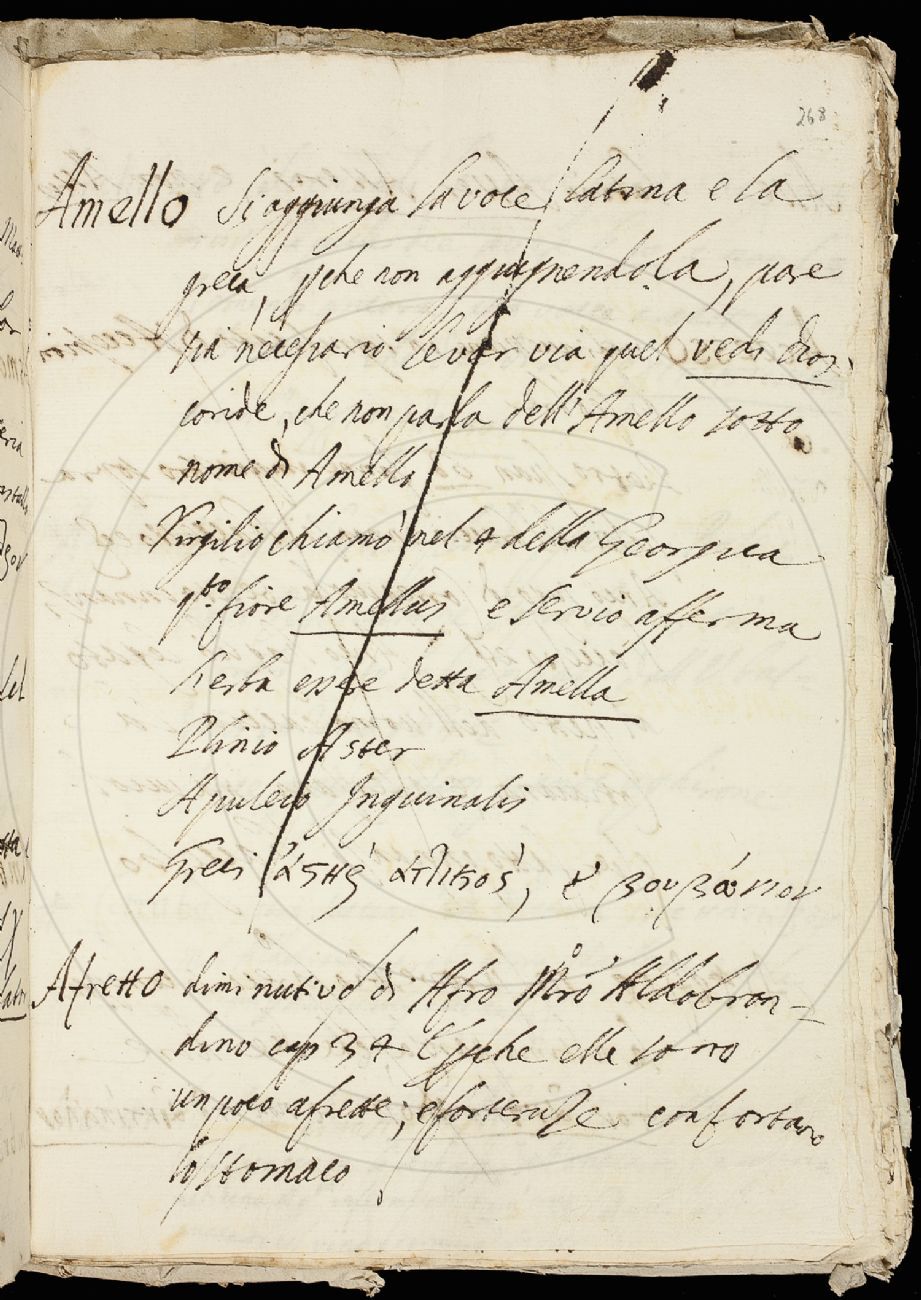 268
Amello Si aggiunga la voce latina e la
greca, pche non aggiugnendola, pare
sia necessario levar via quel vedi Dios
coride, che non parla dell'Amello sotto
nome di Amello
Virgilio chiamò nel 4 della Georgica
qto fiore Amellus e Servio afferma
l'erba essere detta Amella
Plinio Aster
Apuleio Inguinalis
Greci ἀςὴρ ἀτλικὸς, βουβώνιον
Afretto diminutivo di Afro Mro Aldobran-
dino cap 34 E pche elle sono
un poco afrette, confortano
lo stomaco